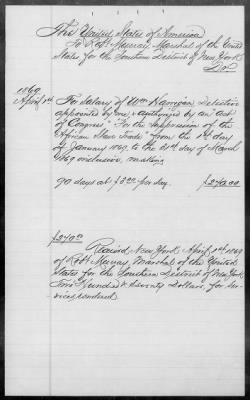 The United States of America
To Robt Murray, Marshal of the United
States for the Southern District of New York
Dr
1869
April 1st For Salary of Wm Hannigan Detective
appointed by me, & authorized by an act
of Congress "For the suppression of the
African Slave Trade" from the 1st day
of January 1869, to the 31st day of March
1869 inclusive, making
90 days at $3.00 per day. $270.00
$270.00
Received, New York, April 1st 1869
of Robt Murray, Marshal of the United
States for the Southern District of New York,
Two Hundred & Seventy Dollars, for ser-
vices rendered